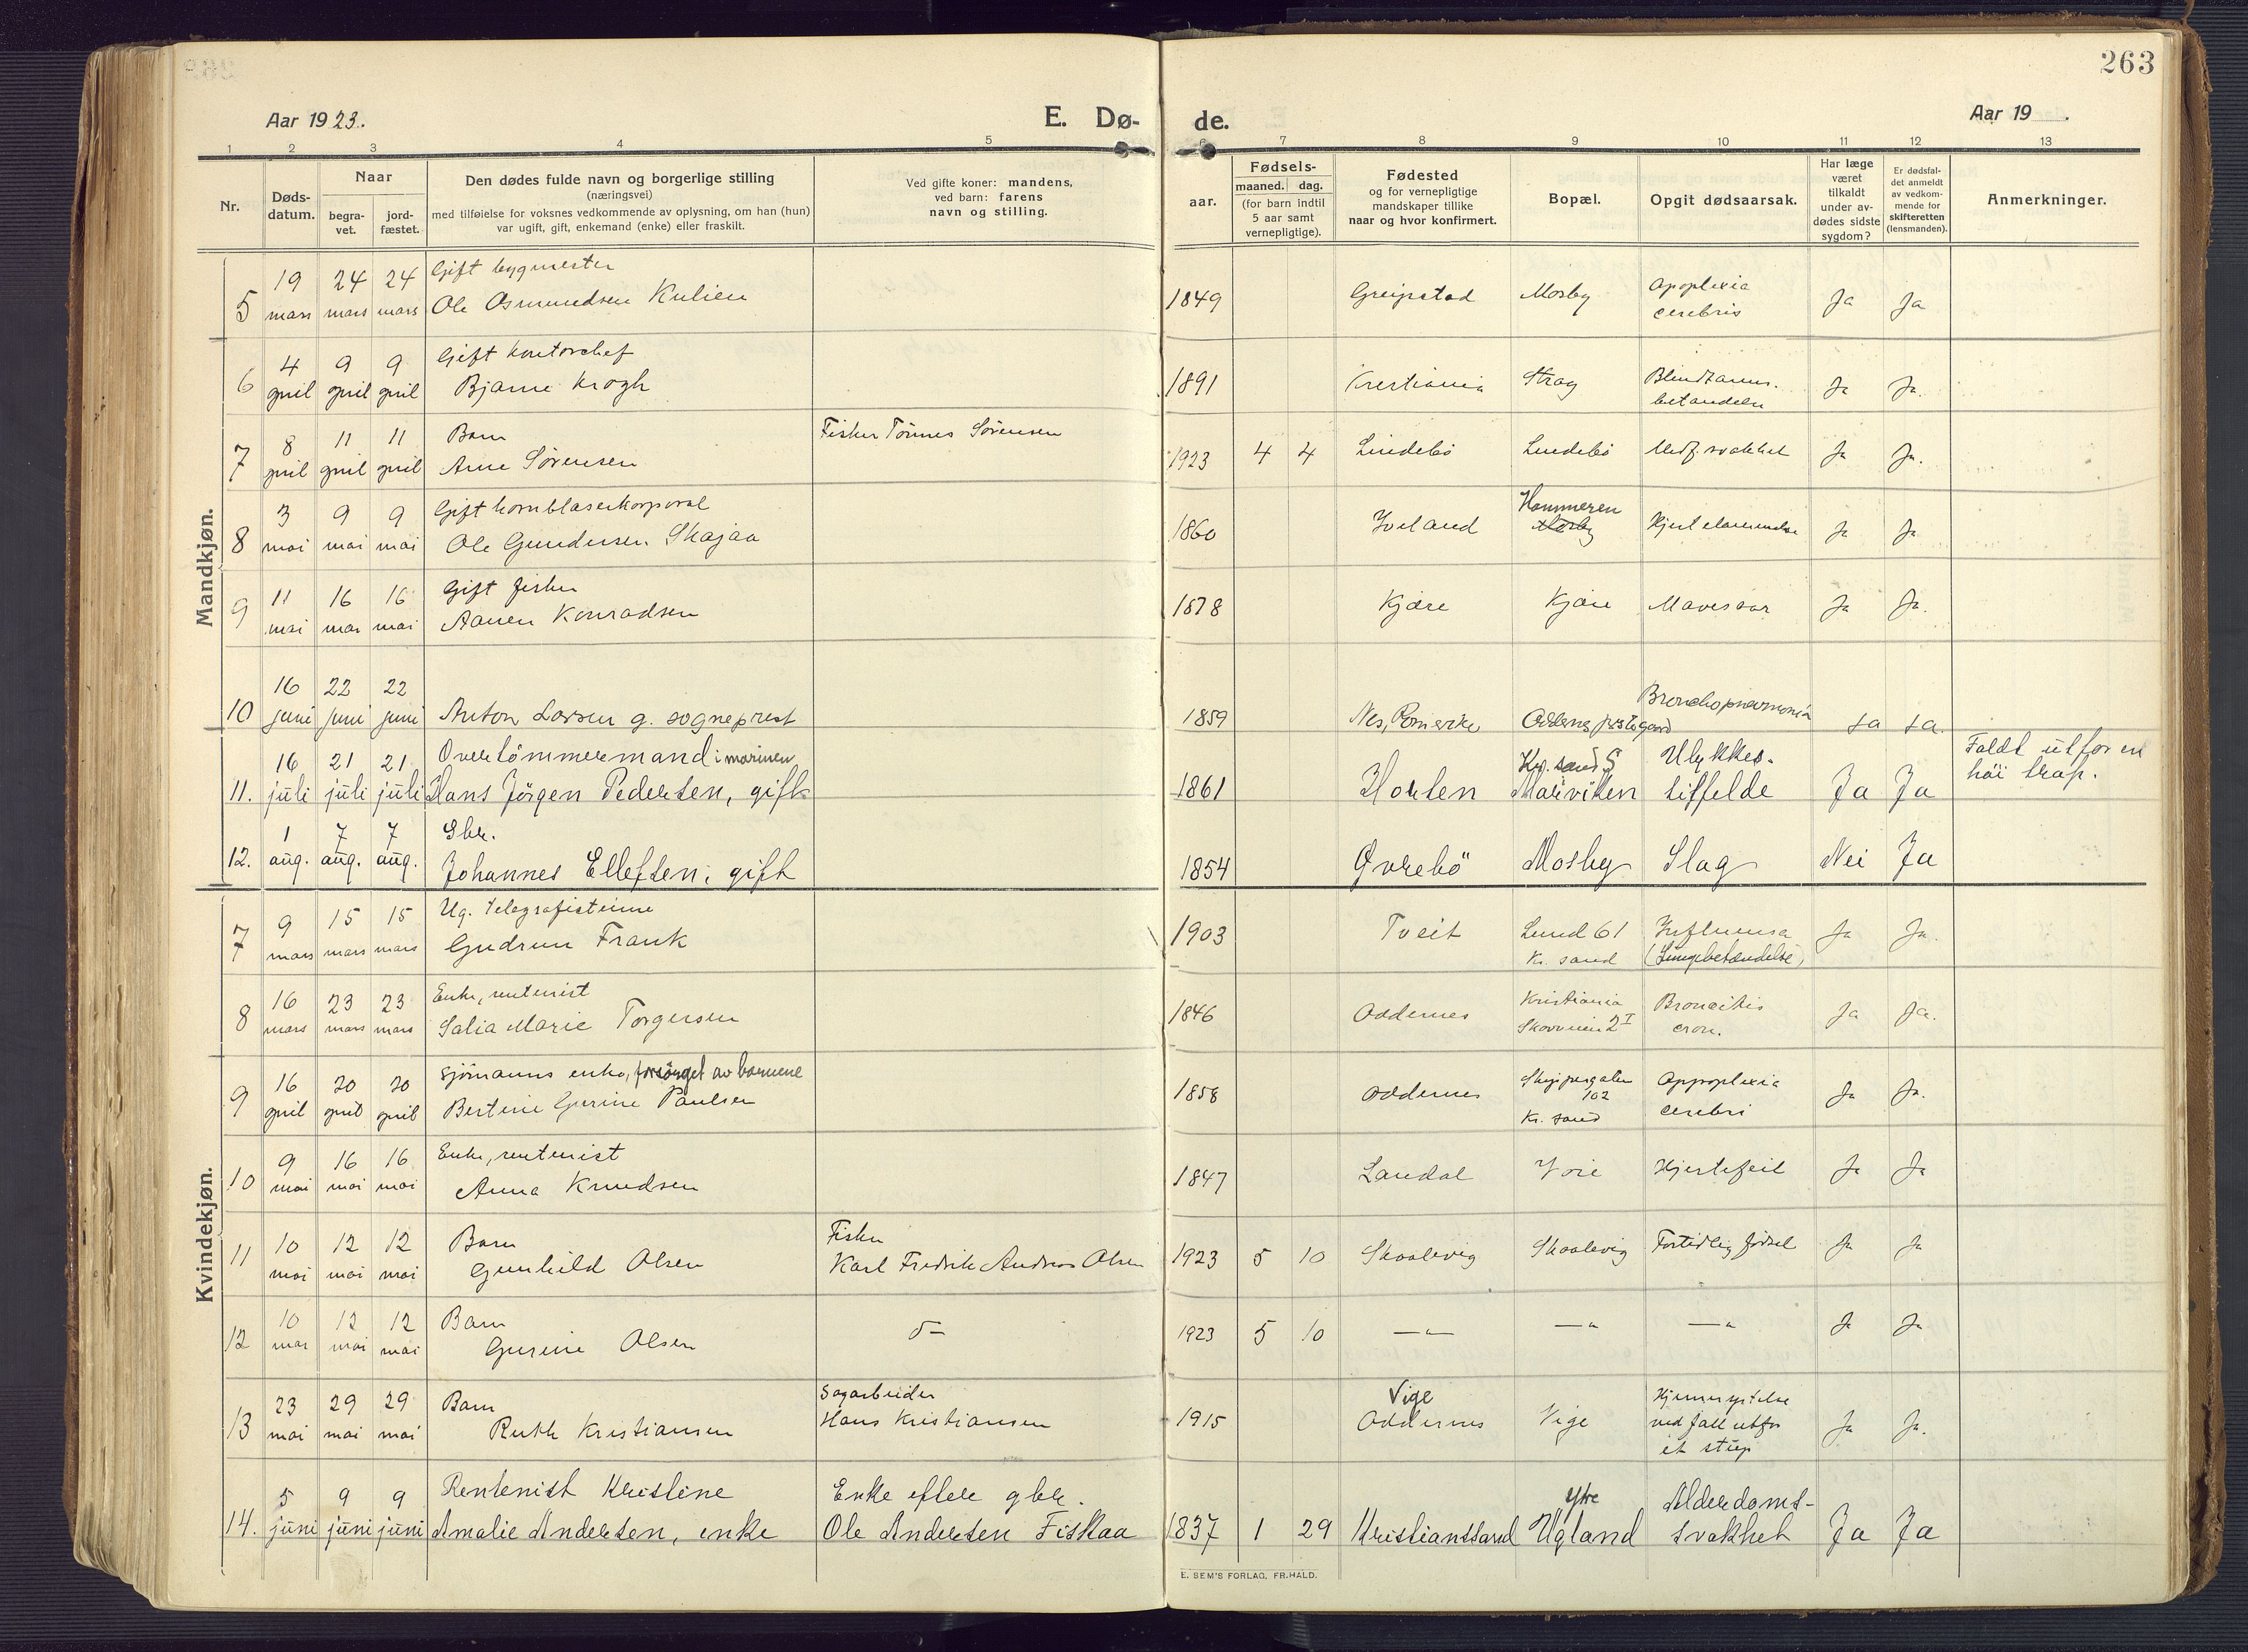 263
Aar 1923.
E. Dø-
de.
Aar 19
1 2 3 4 5 6 7 8 9 10 11 12 13
Nr.
Døds-
datum.
Naar
begra-
vet.
jord-
fæstet.
Den dødes fulde navn og borgerlige stilling
(næringsvei)
med tilføielse for voksnes vedkommende av oplysning, om han (hun)
var ugift, gift, enkemand (enke) eller fraskilt.
Ved gifte koner: mandens,
ved barn: farens
navn og stilling.
aar.
Fødsels-
maaned. dag.
(for barn indtil
5 aar samt
vernepligtige).
Fødested
og for vernepligtige
mandskaper tillike
naar og hvor konfirmert.
Bopæl.
Opgit dødsaarsak.
Har læge
været
tilkaldt
under av-
dødes sidste
sygdom?
Er dødsfal-
det anmeldt
av vedkom-
mende for
skifteretten
(lensmanden).
Anmerkninger.
Mandkjøn.
19 24 24 Gift bygmester
5 mars mars mars Ole Osmundsen Kulien 1849 Greipstad Mosby Apoplexia cerebris Ja Ja
4 9 9 Gift kontorchef
6 april april april Bjarne Krogh 1891 Kristiania Strag Blindtarms-betændelse Ja Ja.
8 11 11 Barn Fisker Tönnes Sörensen
7 april april april Arne Sörensen 1923 4 4 Lindebö Lindebö Medf. svakhet Ja Ja.
3 9 9 Gift hornblaserkorporal Hammeren
8 mai mai mai Ole Gundersen Skajaa 1860 Iveland Mosby Hjertelammelse Ja Ja
11 16 16 Gift fisker
9 mai mai mai Aanen Konradsen 1878 Kjære Kjære Mavesaar Ja Ja.
16 22 22
10 juni juni juni Anton Larsen g. sogneprest 1859 Nes, Romerike Oddernes prestegaard Bronchopneumonia Ja Ja.
16 21 21 Overtömmermand i marinen Kr.sand S Ulykkes- Faldt utfor en
11. juli juli juli Hans Jörgen Pedersen, gift 1861 Horten Marviken tilfelde Ja Ja höi trap.
1 7 7 Gbr.
12. aug. aug. aug. Johannes Ellefsen, gift 1854 Øvrebö Mosby Slag Nei Ja
Kvindekjøn.
9 15 15 Ug. telegrafistinne
7 mars mars mars Gudrun Frank 1903 Tveit Lund 61 Kr. sand Influensa (Lungebetændelse) Ja Ja.
16 23 23 Enke, rentenist
8 mars mars mars Salia Marie Torgersen 1846 Oddernes Kristiania Skovveien 2 I Broncitis cron. Ja Ja.
16 20 20 Sjömanns enke, forsörget av barnene
9 april april april Bertine Gurine Paulsen 1858 Oddernes Skippergaten 102 Kr. sand Appoplexia cerebri Ja Ja.
9 16 16 Enke, rentenist
10 mai mai mai Anna Knudsen 1847 Laudal Voie Hjertefeil Ja Ja
10 12 12 Barn Fisker
11 mai mai mai Gunhild Olsen Karl Fredrik Andreas Olsen 1923 5 10 Skaalevig Skaalevig Fortidlig födsel Ja Ja
10 12 12 Barn
12 mai mai mai Gurine Olsen d– 1923 5 10 —„— —„— —„— Ja Ja
23 29 29 Barn Sagarbeider Vige
13 mai mai mai Ruth Kristiansen Hans Kristiansen 1915 Oddernes Vige Hjernerystelse ved fall utfor et stup Ja Ja.
5 9 9 Rentenist Kristine Enke efter gbr. Ytre Alderdoms-
14. juni juni juni Amalie Andersen, enke Ole Andersen Fiskaa 1837 1 29 Kristianssand Ugland svakhet Ja Ja
E. SEM'S FORLAG, FR.HALD.